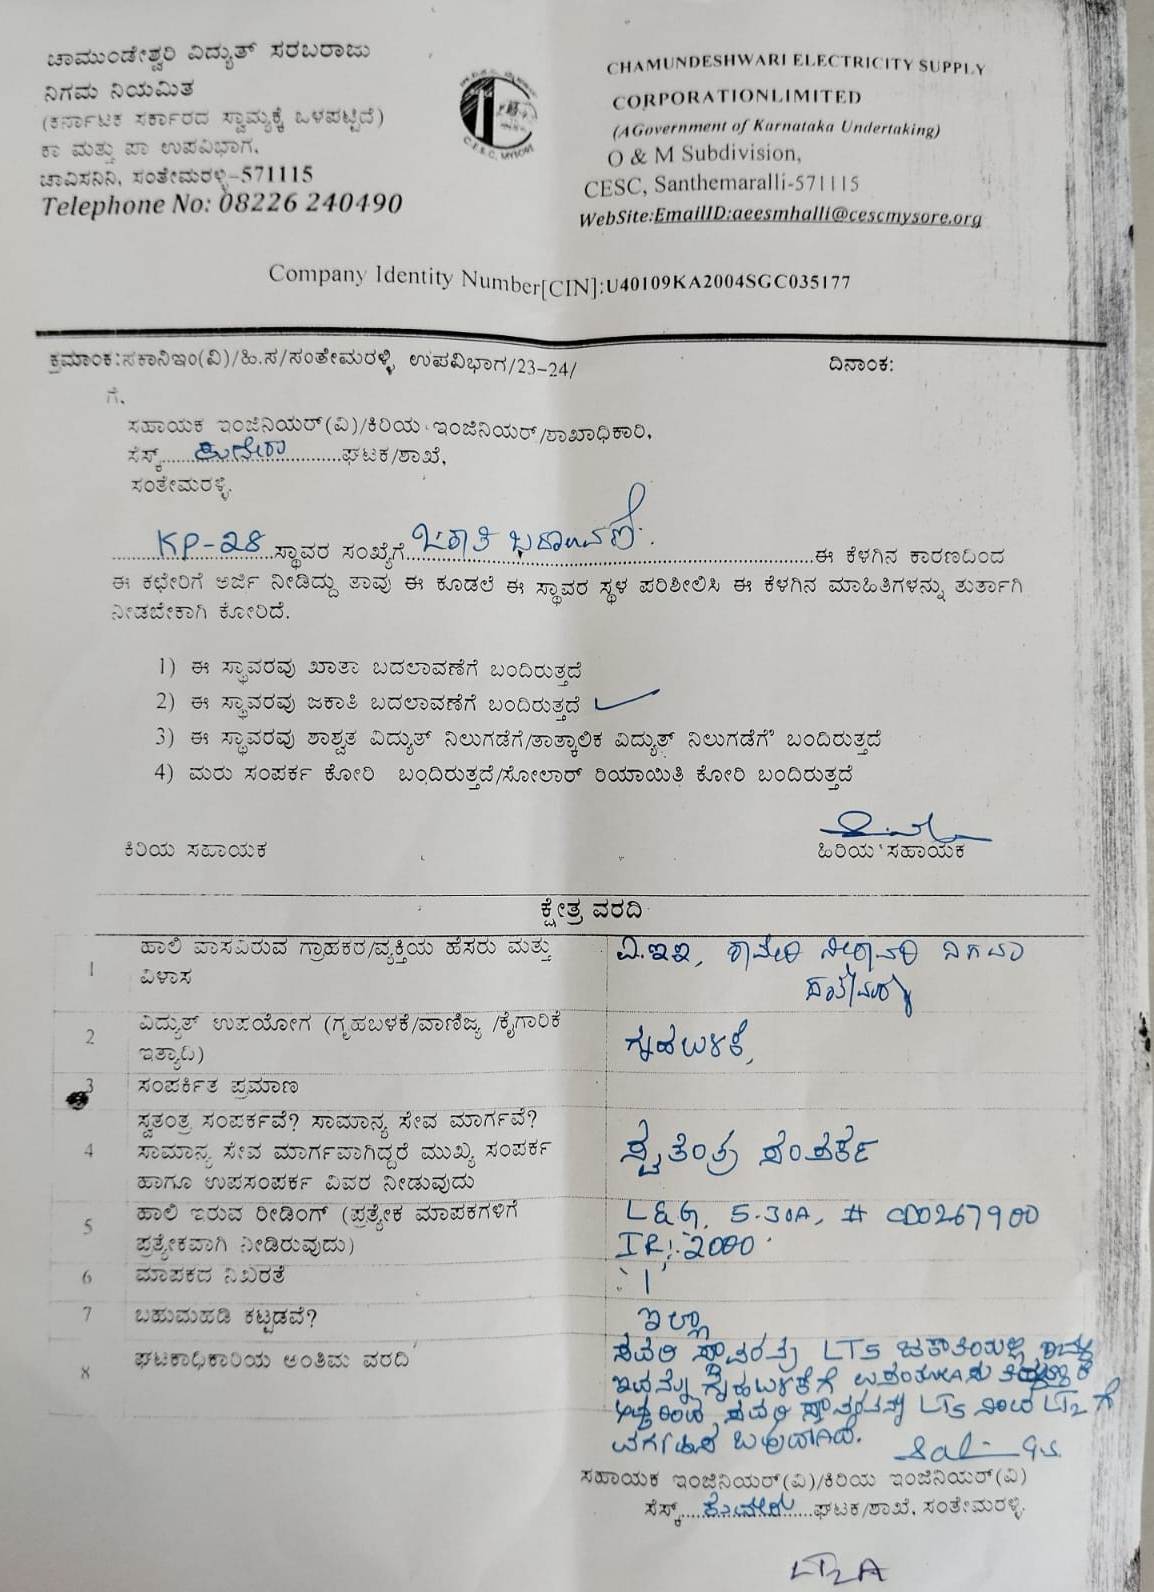 ಚಾಮುಂಡೇಶ್ವರಿ ವಿದ್ಯುತ್ ಸರಬರಾಜು
ನಿಗಮ ನಿಯಮಿತ
(ಕರ್ನಾಟಕ ಸರ್ಕಾರದ ಸ್ವಾಮ್ಯಕ್ಕೆ ಒಳಪಟ್ಟಿದೆ)
ಕಾ ಮತ್ತು ಪಾ ಉಪವಿಭಾಗ,
ಚಾವಿಸನಿನಿ, ಸಂತೇಮರಳ್ಳಿ-571115
Telephone No: 08226 240490
CHAMUNDESHWARI ELECTRICITY SUPPLY
CORPORATIONLIMITED
(AGovernment of Karnataka Undertaking)
O & M Subdivision,
CESC, Santhemaralli-571115
WebSite:EmailID:aeesmhalli@cescmysore.org
C.E.S.C, MYSORE
Company Identity Number[CIN]:U40109KA2004SGC035177
ಕ್ರಮಾಂಕ:ಸಕಾನಿಇಂ(ವಿ)/ಹಿ.ಸ/ಸಂತೇಮರಳ್ಳಿ ಉಪವಿಭಾಗ/23-24/ ದಿನಾಂಕ:
ಗೆ,
ಸಹಾಯಕ ಇಂಜಿನಿಯರ್(ವಿ)/ಕಿರಿಯ ಇಂಜಿನಿಯರ್/ಶಾಖಾಧಿಕಾರಿ,
ಸೆಸ್ಕ್..............ಘಟಕ/ಶಾಖೆ,
ಸಂತೇಮರಳ್ಳಿ.
KP-28 ಸ್ಥಾವರ ಸಂಖ್ಯೆಗೆ ಜಕಾತಿ ಬದಲಾವಣೆ. ಈ ಕೆಳಗಿನ ಕಾರಣದಿಂದ
ಈ ಕಛೇರಿಗೆ ಅರ್ಜಿ ನೀಡಿದ್ದು ತಾವು ಈ ಕೂಡಲೆ ಈ ಸ್ಥಾವರ ಸ್ಥಳ ಪರಿಶೀಲಿಸಿ ಈ ಕೆಳಗಿನ ಮಾಹಿತಿಗಳನ್ನು ತುರ್ತಾಗಿ
ನೀಡಬೇಕಾಗಿ ಕೋರಿದೆ.
1) ಈ ಸ್ಥಾವರವು ಖಾತಾ ಬದಲಾವಣೆಗೆ ಬಂದಿರುತ್ತದೆ
2) ಈ ಸ್ಥಾವರವು ಜಕಾತಿ ಬದಲಾವಣೆಗೆ ಬಂದಿರುತ್ತದೆ
3) ಈ ಸ್ಥಾವರವು ಶಾಶ್ವತ ವಿದ್ಯುತ್ ನಿಲುಗಡೆಗೆ/ತಾತ್ಕಾಲಿಕ ವಿದ್ಯುತ್ ನಿಲುಗಡೆಗೆ ಬಂದಿರುತ್ತದೆ
4) ಮರು ಸಂಪರ್ಕ ಕೋರಿ ಬಂದಿರುತ್ತದೆ/ಸೋಲಾರ್ ರಿಯಾಯಿತಿ ಕೋರಿ ಬಂದಿರುತ್ತದೆ
ಕಿರಿಯ ಸಹಾಯಕ ಹಿರಿಯ ಸಹಾಯಕ
ಕ್ಷೇತ್ರ ವರದಿ
1 ಹಾಲಿ ವಾಸವಿರುವ ಗ್ರಾಹಕರ/ವ್ಯಕ್ತಿಯ ಹೆಸರು ಮತ್ತು
ವಿಳಾಸ
ಎ.ಇಇ, ಕಾವೇರಿ ನೀರಾವರಿ ನಿಗಮ
2 ವಿದ್ಯುತ್ ಉಪಯೋಗ (ಗೃಹಬಳಕೆ/ವಾಣಿಜ್ಯ /ಕೈಗಾರಿಕೆ
ಇತ್ಯಾದಿ)
ಗೃಹಬಳಕೆ,
3 ಸಂಪರ್ಕಿತ ಪ್ರಮಾಣ
4 ಸ್ವತಂತ್ರ ಸಂಪರ್ಕವೆ? ಸಾಮಾನ್ಯ ಸೇವ ಮಾರ್ಗವೆ?
ಸಾಮಾನ್ಯ ಸೇವ ಮಾರ್ಗವಾಗಿದ್ದರೆ ಮುಖ್ಯ ಸಂಪರ್ಕ
ಹಾಗೂ ಉಪಸಂಪರ್ಕ ವಿವರ ನೀಡುವುದು
ಸ್ವತಂತ್ರ ಸಂಪರ್ಕ
5 ಹಾಲಿ ಇರುವ ರೀಡಿಂಗ್ (ಪ್ರತ್ಯೇಕ ಮಾಪಕಗಳಿಗೆ
ಪ್ರತ್ಯೇಕವಾಗಿ ನೀಡಿರುವುದು)
L&G, 5-30A, # CD0267900
IR: 2000
6 ಮಾಪಕದ ನಿಖರತೆ
1
7 ಬಹುಮಹಡಿ ಕಟ್ಟಡವೆ?
ಇಲ್ಲಾ
8 ಘಟಕಾಧಿಕಾರಿಯ ಅಂತಿಮ ವರದಿ
ಸದರಿ ಸ್ಥಾವರವು LT5 ಜಕಾತಿಯಲ್ಲಿ
ಇದನ್ನು ಗೃಹಬಳಕೆಗೆ
ಸದರಿ ಸ್ಥಾವರವನ್ನು LT5 ನಿಂದ LT2 ಗೆ
ವರ್ಗಾಹಿಸ ಬಹುದಾಗಿದೆ.
ಸಹಾಯಕ ಇಂಜಿನಿಯರ್(ವಿ)/ಕಿರಿಯ ಇಂಜಿನಿಯರ್(ವಿ)
ಸೆಸ್ಕ್..............ಘಟಕ/ಶಾಖೆ, ಸಂತೇಮರಳ್ಳಿ.
LT2A